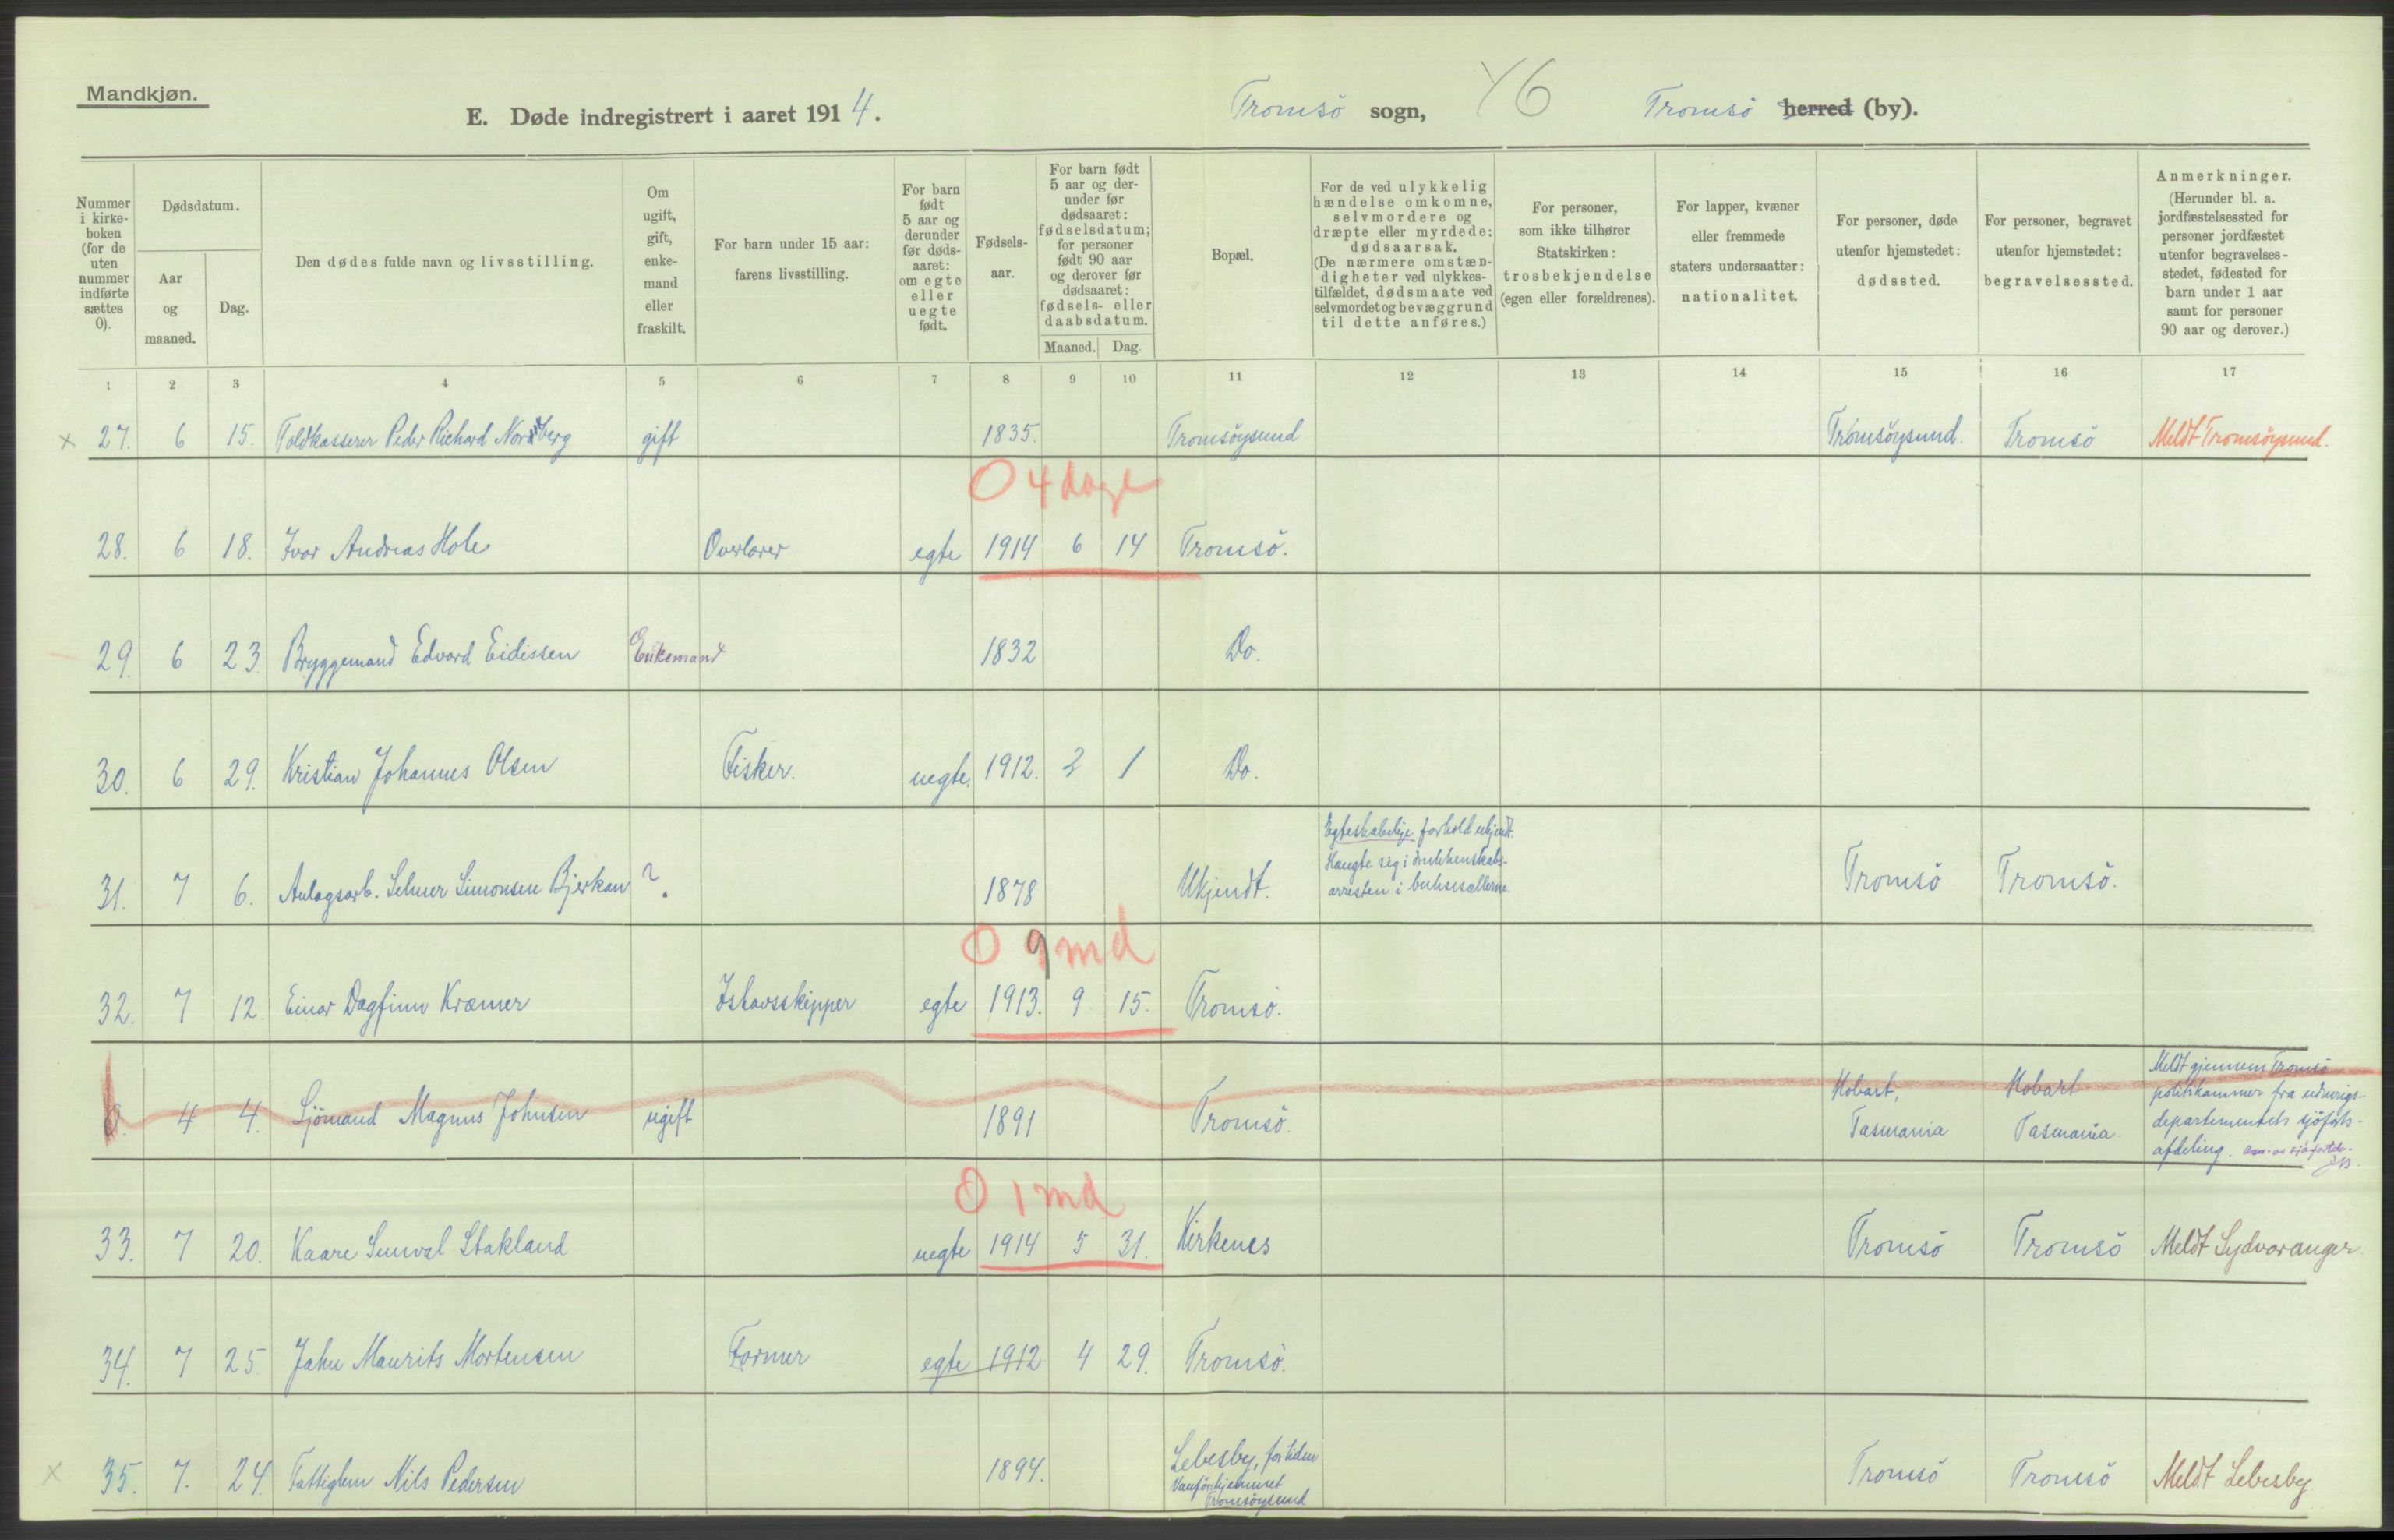 Mandkjøn.
E. Døde indregistrert i aaret 1914.
Tromsö sogn, 46 Tromsö herred (by).
Nummer i kirke-boken (for de uten nummer indførte sættes 0).
Dødsdatum.
Aar og maaned.
Dag.
Den dødes fulde navn og livsstilling.
Om ugift, gift, enke-mand eller fraskilt.
For barn under 15 aar: farens livsstilling.
For barn født 5 aar og derunder før døds-aaret: om egte eller uegte født.
Fødsels-aar.
For barn født 5 aar og der-under før dødsaaret: fødselsdatum; for personer født 90 aar og derover før dødsaaret: fødsels- eller daabsdatum.
Maaned. Dag.
Bopæl.
For de ved ulykkelig hændelse omkomne, selvmordere og dræpte eller myrdede: dødsaarsak. (De nærmere omstæn-digheter ved ulykkes-tilfældet, dødsmaate ved selvmordet og bevæggrund til dette anføres.)
For personer, som ikke tilhører Statskirken: trosbekjendelse (egen eller forældrenes).
For lapper, kvæner eller fremmede staters undersaatter: nationalitet.
For personer, døde utenfor hjemstedet: dødssted.
For personer, begravet utenfor hjemstedet: begravelsessted.
Anmerkninger. (Herunder bl. a. jordfæstelsessted for personer jordfæstet utenfor begravelses-stedet, fødested for barn under 1 aar samt for personer 90 aar og derover.)
1 2 3 4 5 6 7 8 9 10 11 12 13 14 15 16 17
x 27. 6 15. Toldkasserer Peder Richard Nordberg gift 1835. Tromsöysund Tromsöysund. Tromsö Meldt Tromsöysund.
0 4 dage
28. 6 18. Ivar Andreas Hole Overlærer egte 1914 6 14 Tromsö.
29. 6 23. Bryggemand Edvard Eidissen Enkemand 1832 Do.
30. 6 29. Kristian Johannes Olsen Fisker. uegte. 1912. 2 1 Do.
31. 7 6. Anlægsarb. Selmer Simonsen Bjerkan ? 1878 Ukjendt. Egteskabelige forhold ukjendt. Hængte sig i drukkenskabs-arresten i Tromsö Tromsö.
0 9 md
32. 7 12. Einar Dagfinn Kræmer Ishavsskipper egte 1913. 9 15. Tromsö.
0. 4 4. Sjömand Magnus Johnsen ugift 1891 Tromsö. Hobart, Tasmania Hobart Tasmania. Meldt gjennem Tromsö politikammer fra udenrigs-departementets sjöfarts-afdeling.
0 1 md
33. 7 20. Kaare Sunval Stakland uegte 1914 5 31. Kirkenes Tromsö Tromsö Meldt Sydvaranger.
34. 7 25. John Maurits Mortensen Former egte 1912 4 29. Tromsö.
x 35. 7. 24. Fattiglem Nils Pedersen 1894. Lebesby, for tiden Vanförehjemmet Tromsöysund Tromsö Tromsö Meldt Lebesby.